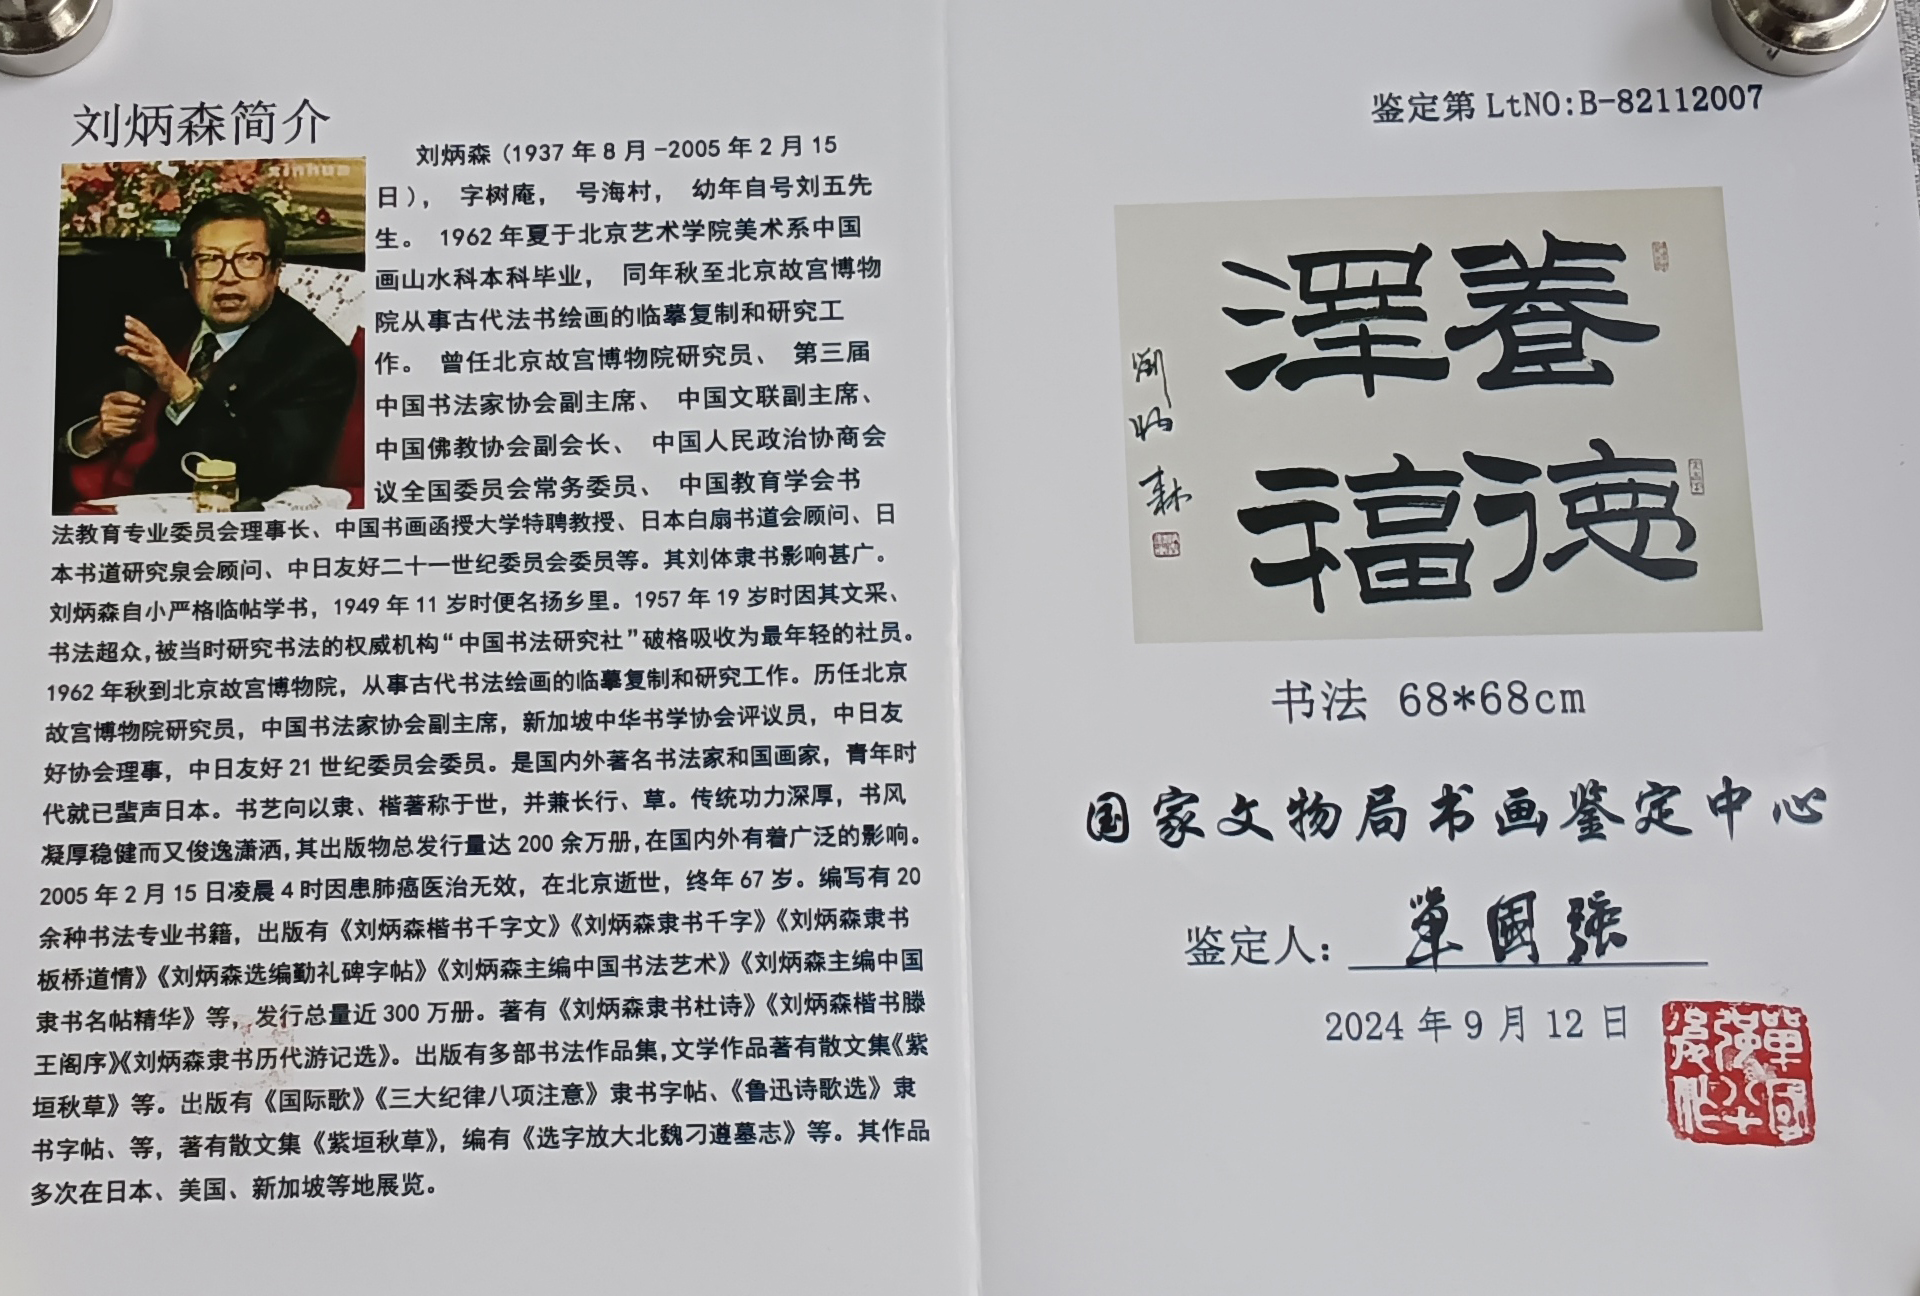 刘炳森简介
xinhua
刘炳森（1937年8月-2005年2月15
日）， 字树庵， 号海村， 幼年自号刘五先
生。 1962年夏于北京艺术学院美术系中国
画山水科本科毕业， 同年秋至北京故宫博物
院从事古代法书绘画的临摹复制和研究工
作。 曾任北京故宫博物院研究员、 第三届
中国书法家协会副主席、 中国文联副主席、
中国佛教协会副会长、 中国人民政治协商会
议全国委员会常务委员、 中国教育学会书
法教育专业委员会理事长、中国书画函授大学特聘教授、日本白扇书道会顾问、日
本书道研究泉会顾问、中日友好二十一世纪委员会委员等。其刘体隶书影响甚广。
刘炳森自小严格临帖学书，1949年11岁时便名扬乡里。1957年19岁时因其文采、
书法超众,被当时研究书法的权威机构“中国书法研究社”破格吸收为最年轻的社员。
1962年秋到北京故宫博物院，从事古代书法绘画的临摹复制和研究工作。历任北京
故宫博物院研究员，中国书法家协会副主席，新加坡中华书学协会评议员，中日友
好协会理事，中日友好21世纪委员会委员。是国内外著名书法家和国画家，青年时
代就已蜚声日本。书艺向以隶、楷著称于世，并兼长行、草。传统功力深厚，书风
凝厚稳健而又俊逸潇洒,其出版物总发行量达200余万册,在国内外有着广泛的影响。
2005年2月15日凌晨4时因患肺癌医治无效，在北京逝世，终年67岁。编写有20
余种书法专业书籍，出版有《刘炳森楷书千字文》《刘炳森隶书千字》《刘炳森隶书
板桥道情》《刘炳森选编勤礼碑字帖》《刘炳森主编中国书法艺术》《刘炳森主编中国
隶书名帖精华》等，发行总量近300万册。著有《刘炳森隶书杜诗》《刘炳森楷书滕
王阁序》《刘炳森隶书历代游记选》。出版有多部书法作品集,文学作品著有散文集《紫
垣秋草》等。出版有《国际歌》《三大纪律八项注意》隶书字帖、《鲁迅诗歌选》隶
书字帖、等，著有散文集《紫垣秋草》，编有《选字放大北魏刁遵墓志》等。其作品
多次在日本、美国、新加坡等地展览。
鉴定第LtNO:B-82112007
養德
澤福
劉炳森
书法 68*68cm
国家文物局书画鉴定中心
鉴定人：單國強
2024年9月12日
單国
強八十
後作